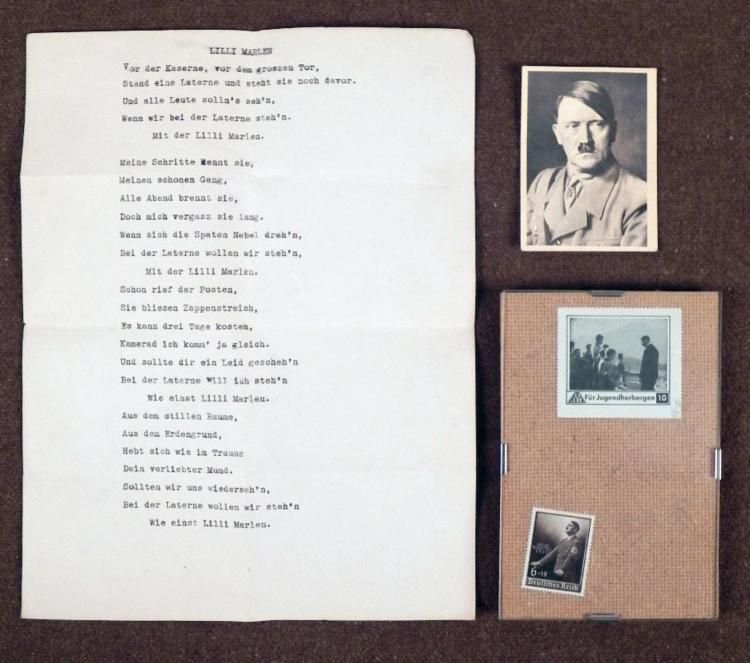 LILLI MARLEN
Vor der Kaserne, vor dem groszen Tor,
Stand eine Laterne und steht sie noch davor.
Und alle Leute solln's seh'n,
Wenn wir bei der Laterne steh'n.
Mit der Lilli Marlen.
Meine Schritte kennt sie,
Meinen schonen Gang,
Alle Abend brennt sie,
Doch mich vergasz sie lang.
Wenn sich die Spaten Nebel dreh'n,
Bei der Laterne wollen wir steh'n,
Mit der Lilli Marlen.
Schon rief der Posten,
Sie bliesen Zappenstreich,
Es kann drei Tage kosten,
Kamerad ich komm' ja gleich.
Und sollte dir ein Leid gescheh'n
Bei der Laterne Will ich steh'n
Wie einst Lilli Marlen.
Aus dem stillen Raume,
Aus dem Erdengrund,
Hebt sich wie im Traume
Dein verliebter Mund.
Sollten wir uns wiederseh'n,
Bei der Laterne wollen wir steh'n
Wie einst Lilli Marlen.
Für Jugendherbergen 10
6+19
Deutsches Reich